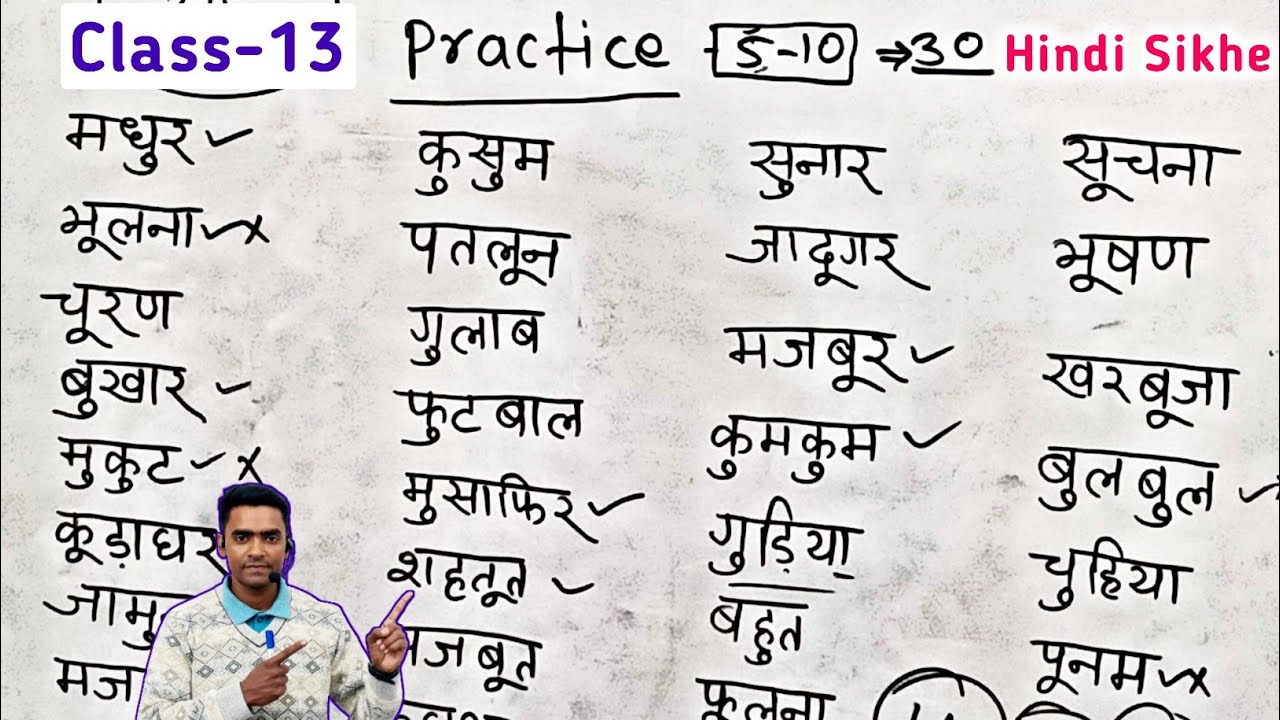 Class-13 Practice - 5-10 ⇒30 Hindi Sikhe
मधुर ✓ कुसुम सुनार सूचना
भूलना ✓x पतलून जादूगर भूषण
चूरण गुलाब मजबूर ✓ खरबूजा
बुखार ✓ फुटबाल कुमकुम ✓ बुलबुल ✓
मुकुट ✓x मुसाफिर ✓ गुड़िया चुहिया
कूड़ाघर शहतूत ✓ बहुत पूनम ✓x
फूलना